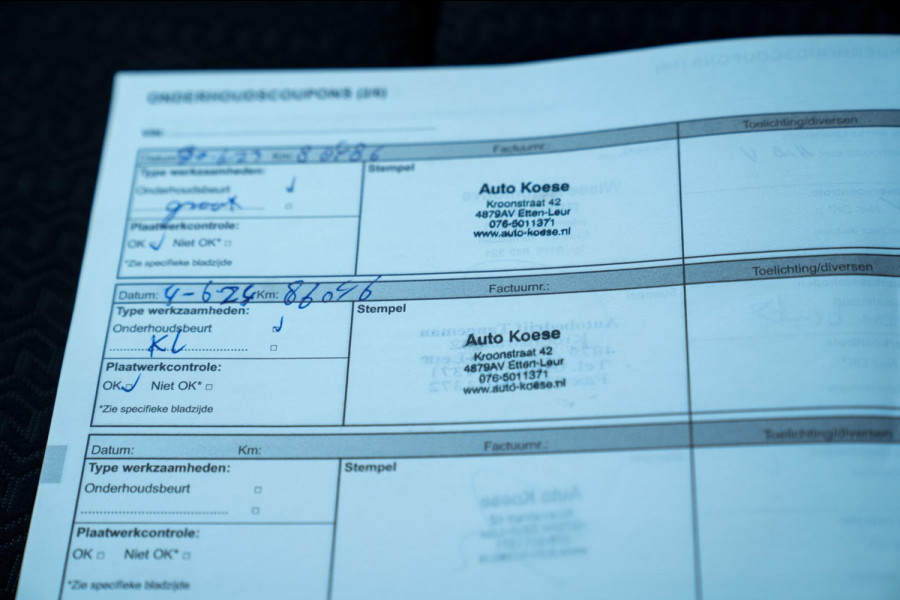 ONDERHOUDSCOUPONS
Datum: Km: Factuurnr. Toelichting/diversen
Type werkzaamheden: Stempel
Onderhoudsbeurt
groot
Plaatwerkcontrole:
OK Niet OK*
*Zie specifieke bladzijde
Auto Koese
Kroonstraat 42
4879AV Etten-Leur
076-5011371
www.auto-koese.nl
Datum: 4-6-24 Km: 86046 Factuurnr.: Toelichting/diversen
Type werkzaamheden: Stempel
Onderhoudsbeurt
KL
Plaatwerkcontrole:
OK Niet OK*
*Zie specifieke bladzijde
Auto Koese
Kroonstraat 42
4879AV Etten-Leur
076-5011371
www.auto-koese.nl
Datum: Km: Factuurnr.: Toelichting/diversen
Type werkzaamheden: Stempel
Onderhoudsbeurt
Plaatwerkcontrole:
OK Niet OK*
*Zie specifieke bladzijde